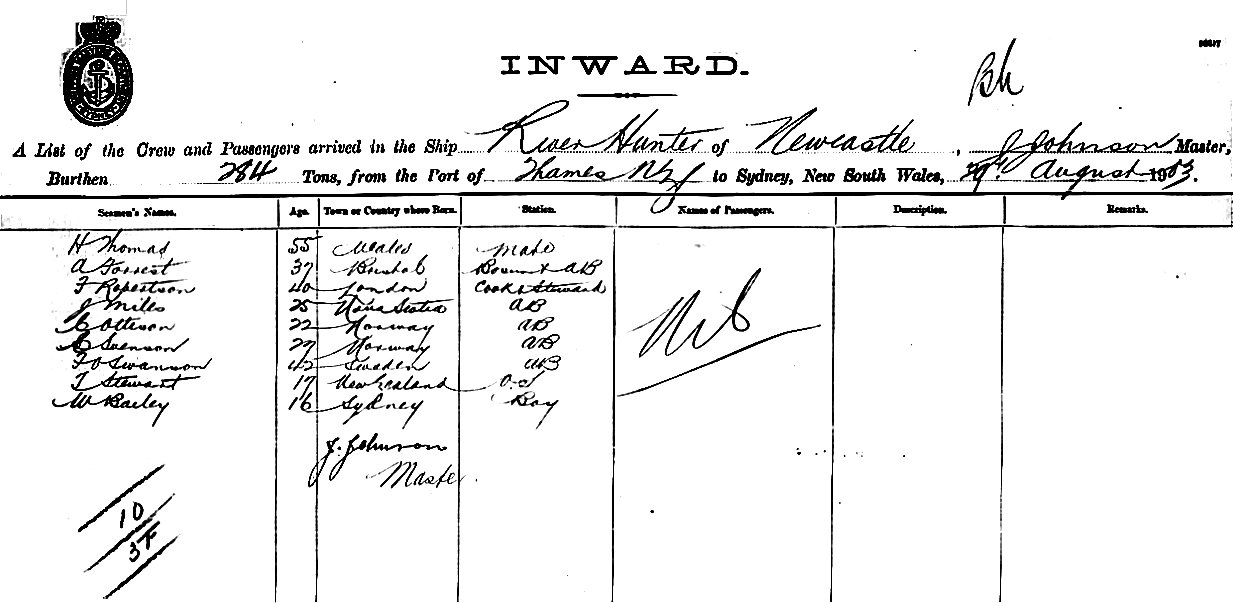 INWARD.
Bk
A List of the Crew and Passengers arrived in the Ship River Hunter of Newcastle, J Johnson Master,
Burthen 284 Tons, from the Port of Thames NZ to Sydney, New South Wales, 29th August 1903.
Seamen's Names. Age. Town or Country where Born. Station. Names of Passengers. Description. Remarks.
H Thomas 55 Wales Mate
A Forrest 37 Bristol Bosun & AB
F Robertson 40 London Cook & Steward
J Miles 25 Nova Scotia AB
C Otteson 22 Norway AB
C Svenson 29 Norway AB
F O Swanson 42 Sweden AB
T Stewart 17 New Zealand O.S
W Bailey 16 Sydney Boy
Nil
J. Johnson
Master
10
3F